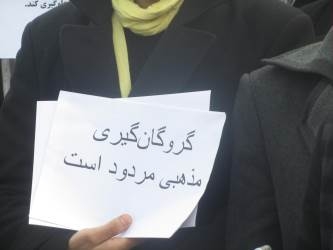 گروگان‌گیری
مذهبی مردود است